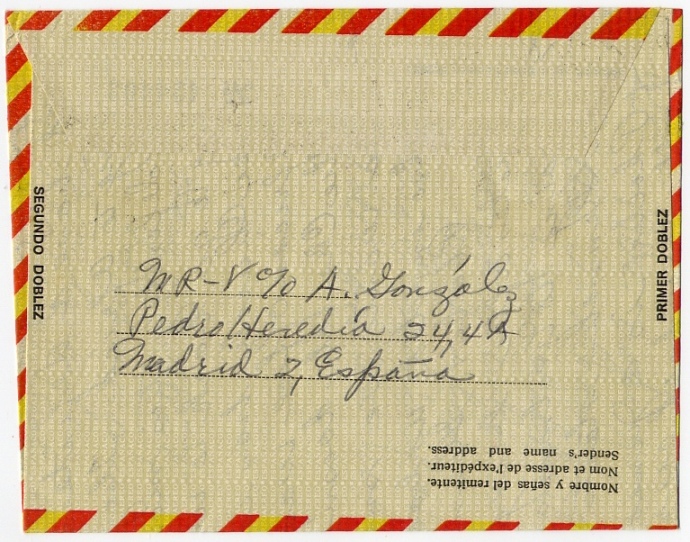 SEGUNDO DOBLEZ
PRIMER DOBLEZ
MR-V c/o A. González
Pedro Heredia 24, 4A
Madrid 2, España
Nombre y señas del remitente.
Nom et adresse de l'expéditeur.
Sender's name and address.